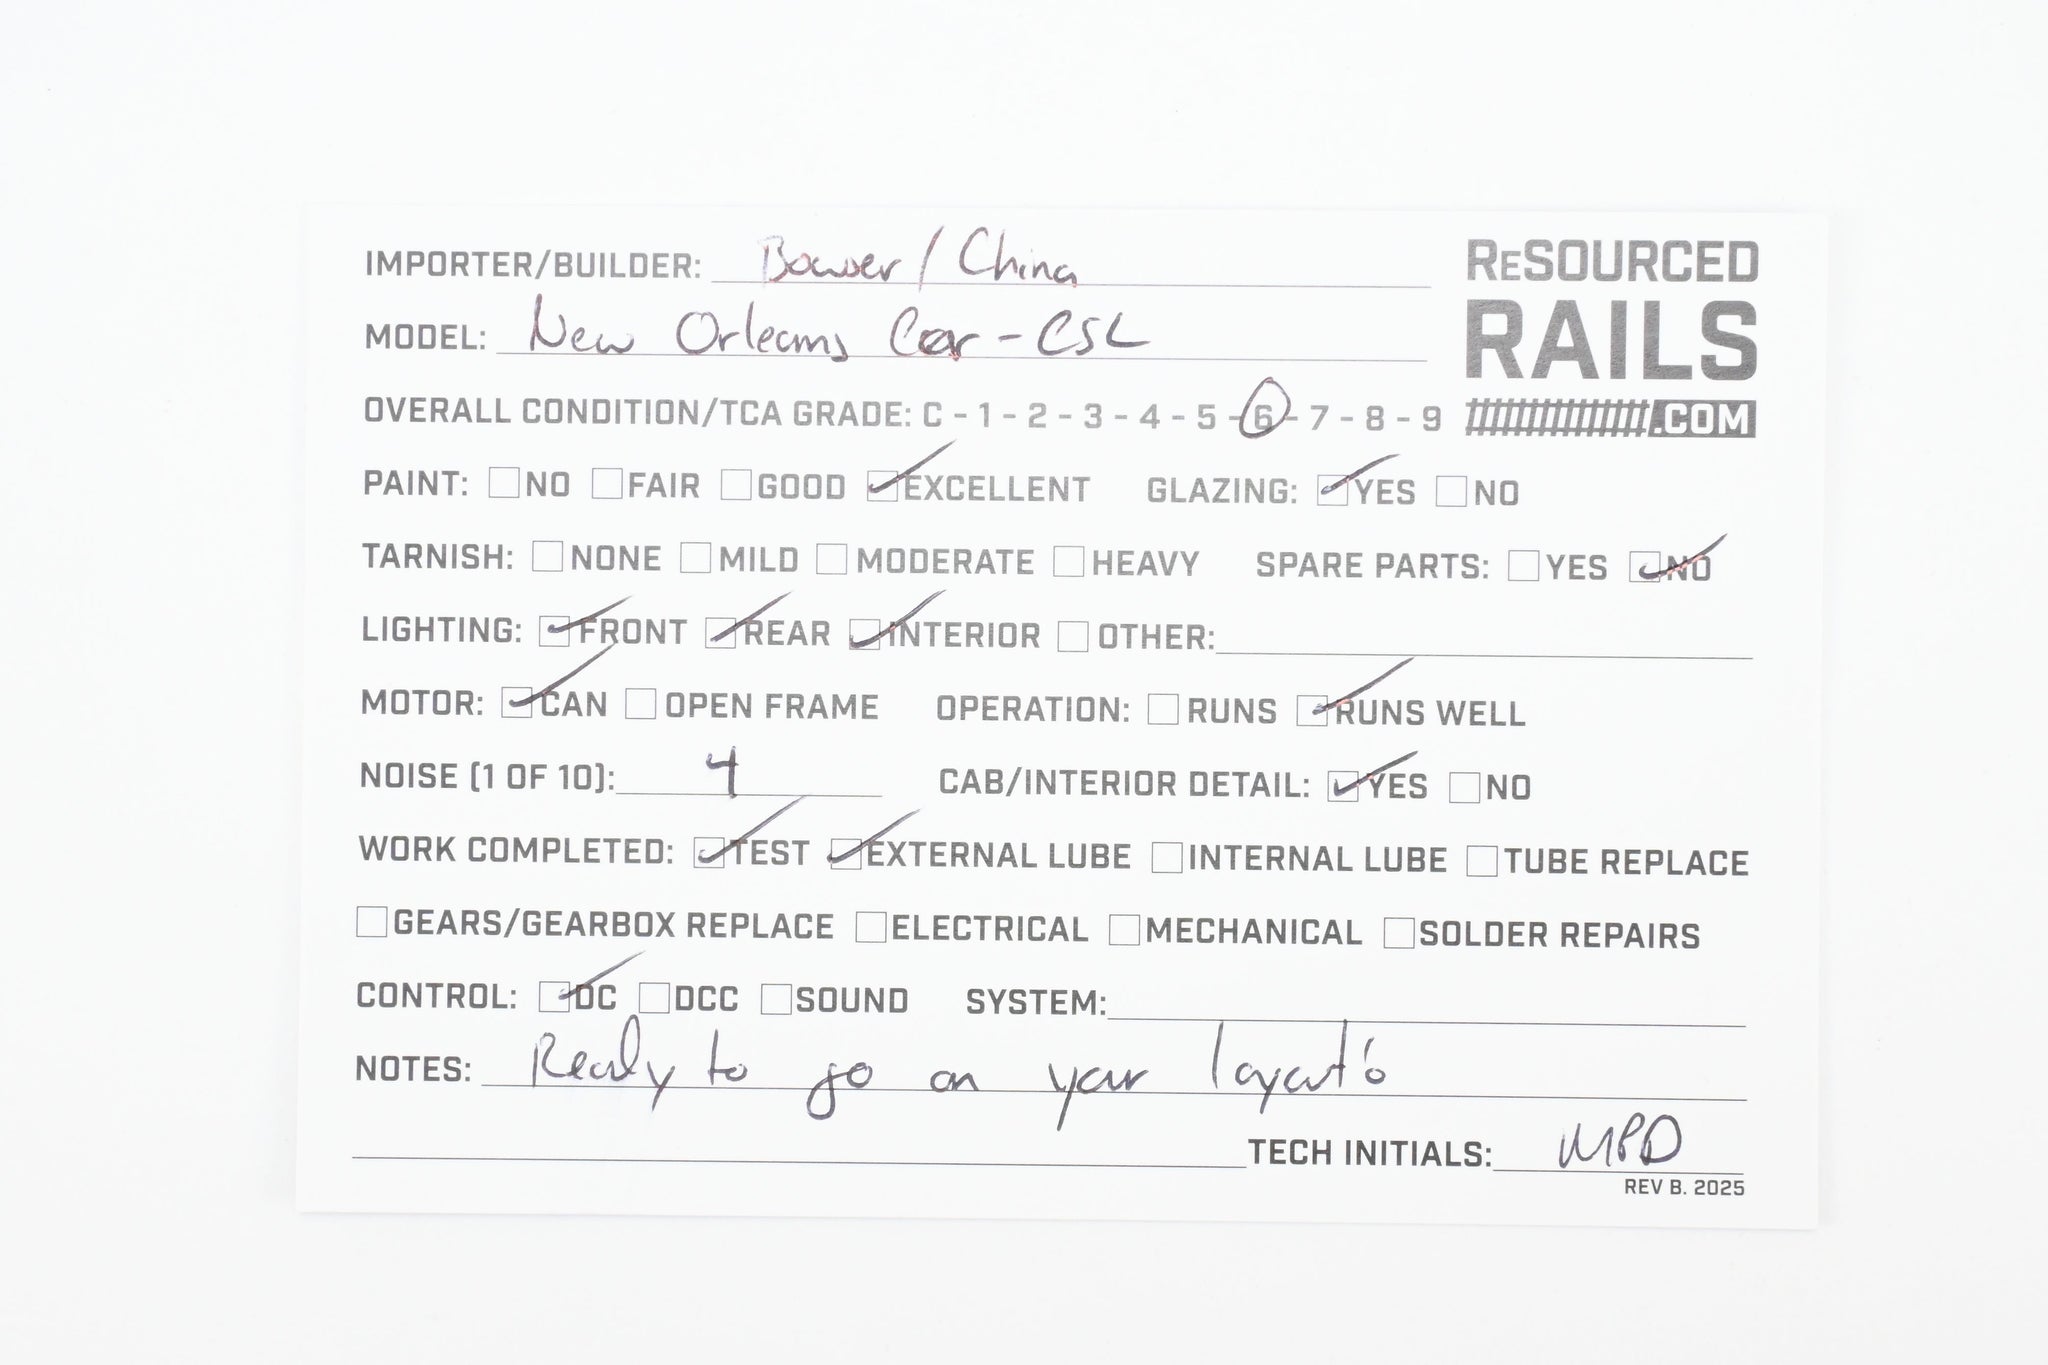 IMPORTER/BUILDER: Bowser / China
ReSOURCED
RAILS
.COM
MODEL: New Orleans Car - CSL
OVERALL CONDITION/TCA GRADE: C - 1 - 2 - 3 - 4 - 5 - 6 - 7 - 8 - 9
PAINT: NO FAIR GOOD EXCELLENT GLAZING: YES NO
TARNISH: NONE MILD MODERATE HEAVY SPARE PARTS: YES NO
LIGHTING: FRONT REAR INTERIOR OTHER:
MOTOR: CAN OPEN FRAME OPERATION: RUNS RUNS WELL
NOISE (1 OF 10): 4 CAB/INTERIOR DETAIL: YES NO
WORK COMPLETED: TEST EXTERNAL LUBE INTERNAL LUBE TUBE REPLACE
GEARS/GEARBOX REPLACE ELECTRICAL MECHANICAL SOLDER REPAIRS
CONTROL: DC DCC SOUND SYSTEM:
NOTES: Ready to go on your layout!
TECH INITIALS: MPD
REV B. 2025